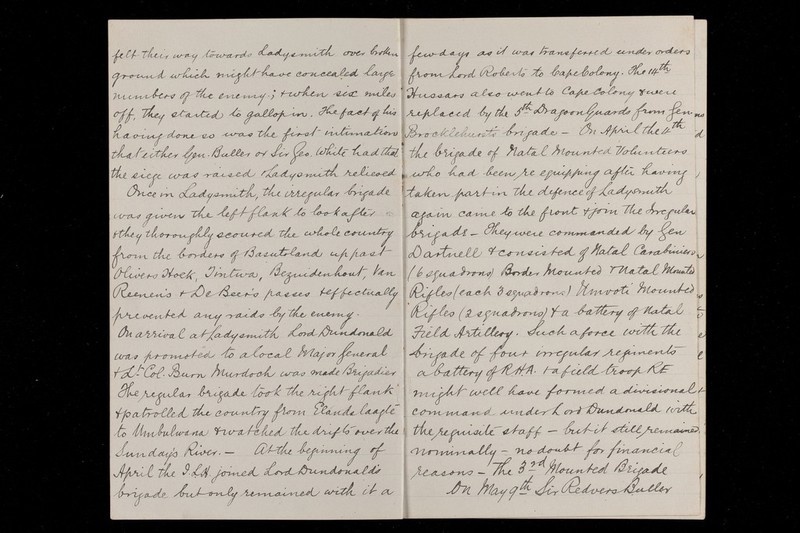 felt their way towards Ladysmith over broken
ground which might have concealed large
numbers of the enemy; & when six miles
off, they started to gallop in. The fact of his
having done so was the first intimation
that either Gen. Buller or Sir Geo. White had that
the siege was raised & Ladysmith relieved
Once in Ladysmith, the irregular brigade
was given the left flank to look after
& they thoroughly scoured the whole country
from the borders of Basutoland up past
Olivers Hoek, Tintwa, Bezuidenhout, Van
Reenen's & De Beer's passes & effectually
prevented any raids by the enemy.
On arrival at Ladysmith Lord Dundonald
was promoted to a local Major General
& Lt. Col. Burn Murdoch was made Brigadier
The regular brigade took the right flank
& patrolled the country from Elandslaagte
to Umbulwana & watched the drifts over the
Sundays River. — At the beginning of
April the I.L.H joined Lord Dundonald's
brigade but only remained with it a
few days as it was transferred under orders
from Lord Roberts to Cape Colony. The 14th
Hussars also went to Cape Colony & were
replaced by the 5th Dragoon Guards from Gen
Brocklehurst's brigade — On April the
the brigade of Natal Mounted Volunteers
who had been re equipping after having
taken part in the defence of Ladysmith
again came to the front & join the Irregular
brigade — They were commanded by Gen
Dartnell & consisted of Natal Carabiniers
(6 squadrons) Border Mounted & Natal Mounted
Rifles (each 3 squadrons) Umvoti Mounted
Rifles (2 squadrons) & a battery of Natal
Field Artillery. Such a force with the
brigade of four irregular regiments
a battery of R.H.A. & a field troop RE
might well have formed a divisional
command under Lord Dundonald with
the requisite staff — but it still remained
nominally — no doubt for financial
reasons — The 3rd Mounted Brigade
On May 9th Sir Redvers Buller